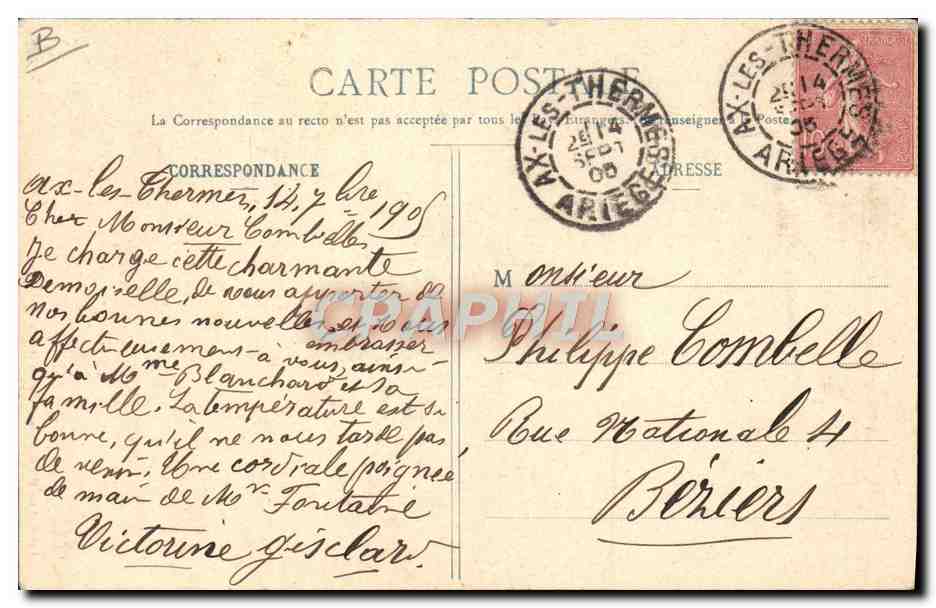 B
CARTE POSTALE
La Correspondance au recto n'est pas acceptée par tous les Etrangers. renseigner à Poste
CORRESPONDANCE
ADRESSE
AX-LES-THERMES
14
SEPT
05
ARIEGE
AX-LES-THERMES
14
SEPT
05
ARIEGE
ax-les-Thermes, 14, 7bre 1905
Cher Monsieur Combelle
Je charge cette charmante
Demoiselle, de vous apporter de
nos bonnes nouvelles, et vous
embrasser
affectueusement à vous, ainsi
qu'à Mme Blanchard et sa
famille. La température est si
bonne, qu'il ne nous tarde pas
de venir. Une cordiale poignée
de main de Mr Fontaine
Victorine Gisclard
Monsieur
Philippe Combelle
Rue Nationale 4
Béziers
CPAPHIL